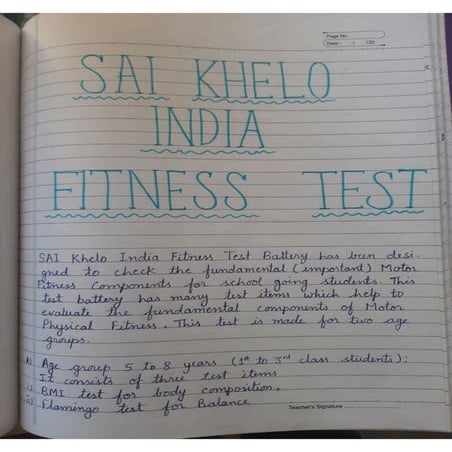 Page No.
Date: / /20
SAI KHELO
INDIA
FITNESS TEST
SAI Khelo India Fitness Test Battery has been desi-
gned to check the fundamental (important) Motor
Fitness Components for school going students. This
test battery has many test items which help to
evaluate the fundamental components of Motor
Physical Fitness. This test is made for two age
groups.
Age group 5 to 8 years (1st to 3rd class students):
It consists of three test items
BMI test for body composition.
Flamingo test for Balance
Teacher's Signature